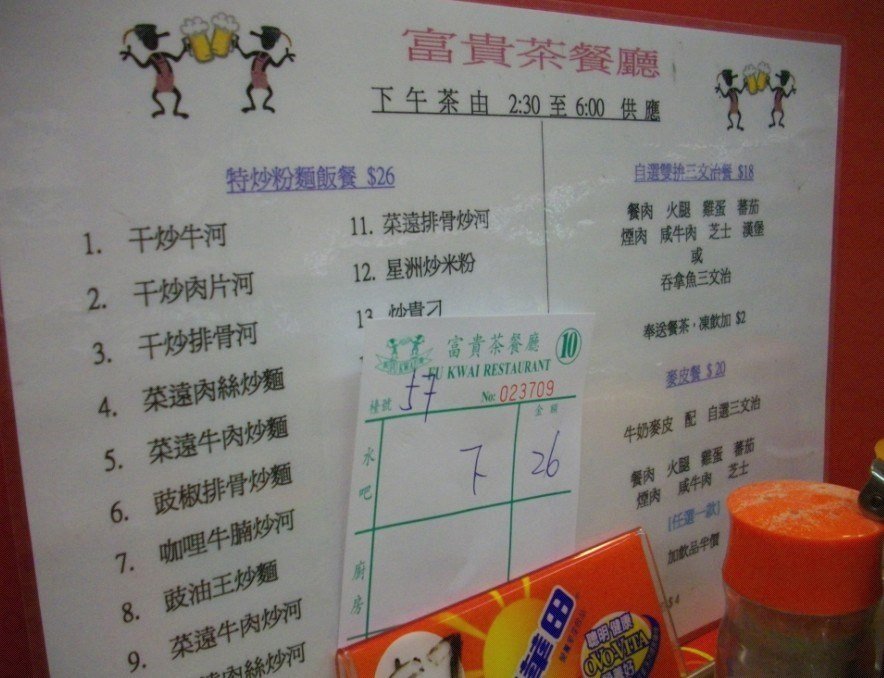 富貴茶餐廳
下午茶由 2:30 至 6:00 供應
特炒粉麵飯餐 $26
1. 干炒牛河
2. 干炒肉片河
3. 干炒排骨河
4. 菜遠肉絲炒麵
5. 菜遠牛肉炒麵
6. 豉椒排骨炒麵
7. 咖哩牛腩炒河
8. 豉油王炒麵
9. 菜遠牛肉炒河
肉絲炒河
11. 菜遠排骨炒河
12. 星洲炒米粉
13 炒貴刁
自選雙拚三文治餐 $18
餐肉 火腿 雞蛋 蕃茄
煙肉 咸牛肉 芝士 漢堡
或
吞拿魚三文治
奉送餐茶，凍飲加 $2
麥皮餐 $20
牛奶麥皮 配 自選三文治
餐肉 火腿 雞蛋 蕃茄
煙肉 咸牛肉 芝士
[任選一款]
加飲品半價
$4
富貴茶餐廳 10
FU KWAI RESTAURANT
檯號 57 No: 023709
金額
水吧 下 26
廚房
聰明 健康